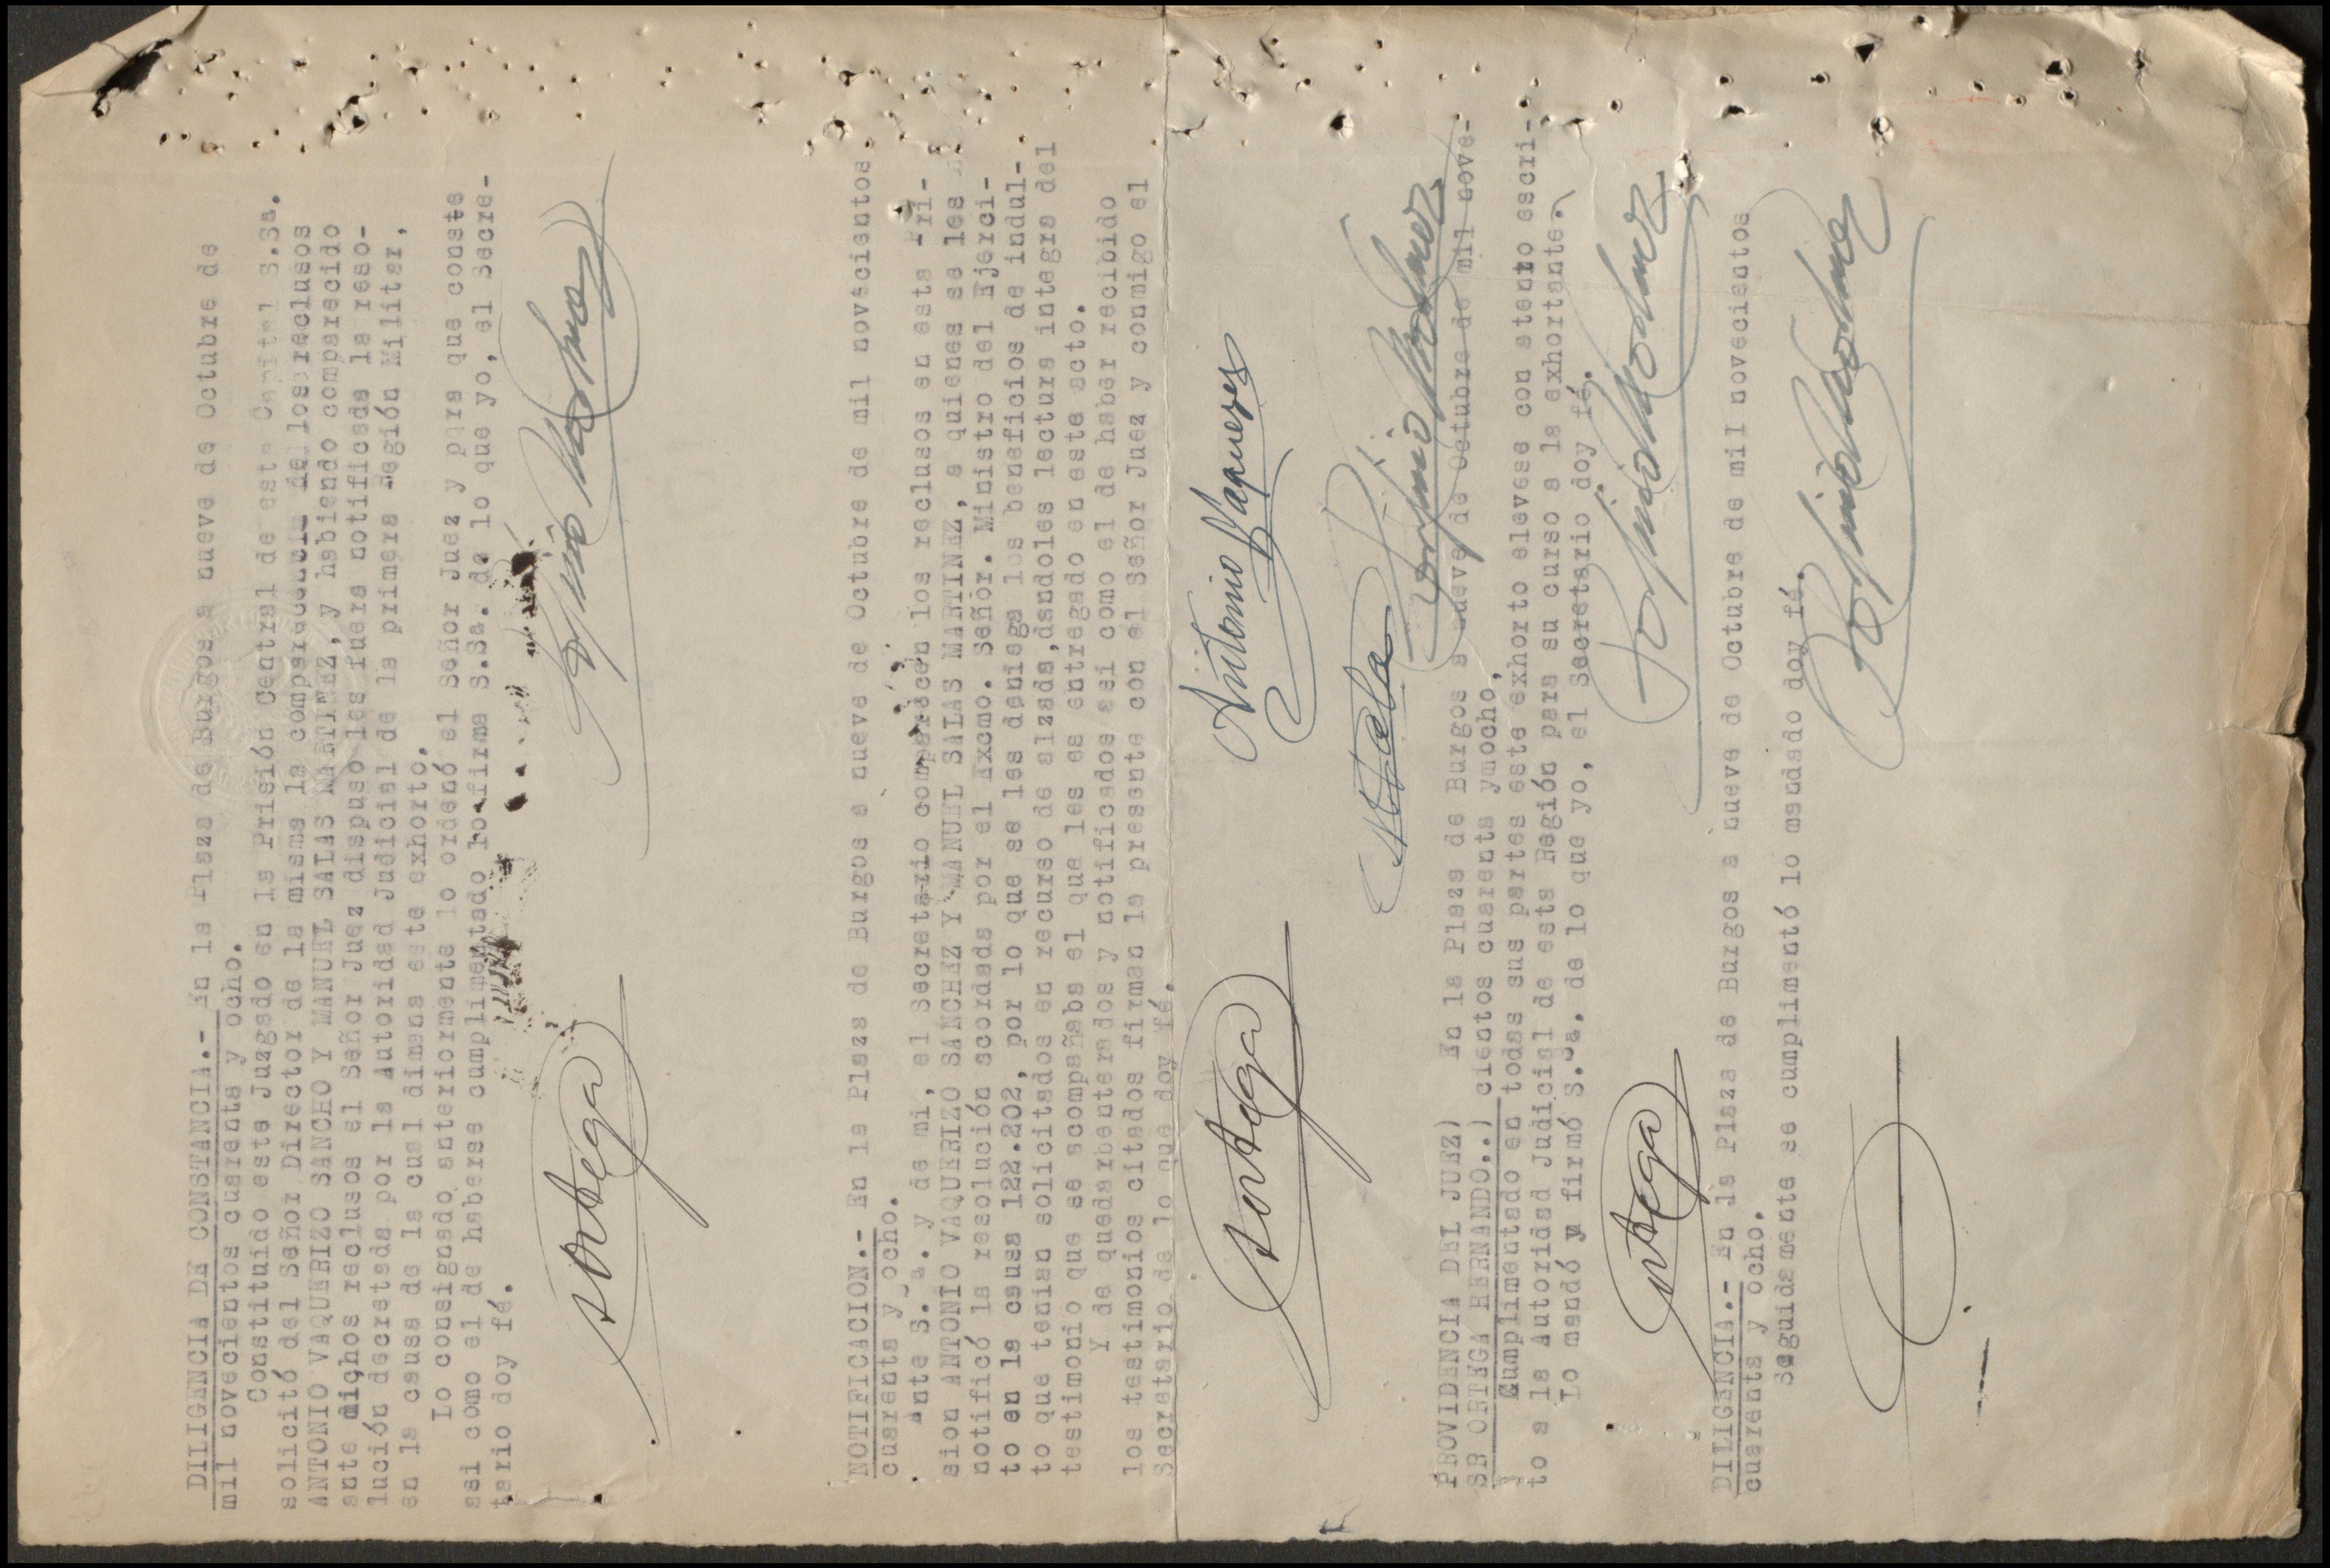 DILIGENCIA DE CONSTANCIA.- En la Plaza de Burgos a nueve de Octubre de
mil novecientos cuarenta y ocho.
Constituido este Juzgado en la Prisión Central de esta Capital S.Sa.
solicitó del Señor Director de la misma la comparecencia de los reclusos
ANTONIO VAQUERIZO SANCHO Y MANUEL SALAS MARTINEZ, y habiendo comparecido
ante michos reclusos el Señor Juez dispuso les fuera notificada la reso-
lución decretada por la Autoridad Judicial de la primera Región Militar,
en la causa de la cual dimana este exhorto.
Lo consignado anteriormente lo ordenó el Señor Juez y para que conste
asi como el de haberse cumplimentado lo firma S.Sa. de lo que yo, el Secre-
tario doy fé.
Ortega
NOTIFICACION.- En la Plaza de Burgos a nueve de Octubre de mil novecientos
cuarenta y ocho.
Ante S. a. y de mi, el Secretario comparecen los reclusos en esta Pri-
sion ANTONIO VAQUERIZO SANCHEZ Y MANUEL SALAS MARTINEZ, a quienes se les
notificó la resolución acordada por el Excmo. Señor. Ministro del Ejerci-
to en la causa 122.202, por lo que se les deniega los beneficios de indul-
to que tenian solicitados en recurso de alzada,dandoles lectura integra del
testimonio que se acompañaba el que les es entregado en este acto.
Y de quedarbenterados y notificados asi como el de haber recibido
los testimonios citados firman la presente con el Señor Juez y conmigo el
Secretario de lo que doy fé.
Antonio Vaquerizo
Ortega
PROVIDENCIA DEL JUEZ) En la Plaza de Burgos a nueve de Octubre de mil nove-
SR ORTEGA HERNANDO..) cientos cuarenta ymocho,
Cumplimentado en todas sus partes este exhorto elevese con atento escri-
to a la Autoridad Judicial de esta Región para su curso a la exhortante.
Lo mandó y firmó S.Sa. de lo que yo, el Secretario doy fé.
Ortega
DILIGENCIA.- En la Plaza de Burgos a nueve de Octubre de mil novecientos
cuarenta y ocho.
Seguidamente se cumplimentó lo mandado doy fé.